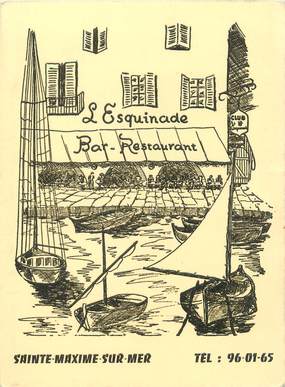 L'Esquinade
Bar-Restaurant
CLUB
SAINTE-MAXIME-SUR-MER TEL : 96-01-65